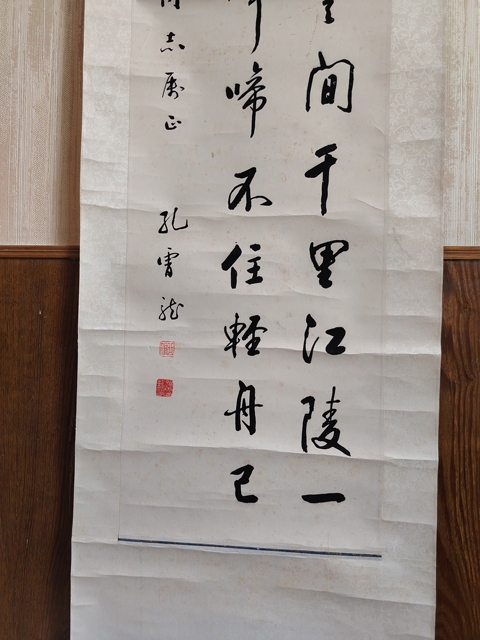 間千里江陵一
啼不住輕舟已
志属正
孔霄龍